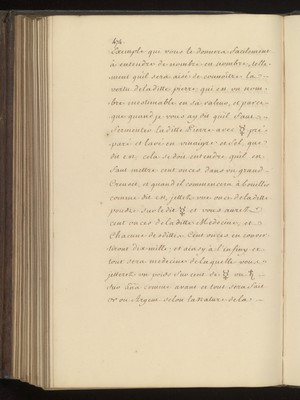 474.
Exemple que vous le donnera facilement
à entendre de nombre en nombre, telle-
ment quil sera aisé de connoître la
vertu de laditte pierre qui est un nom-
bre inestimable en sa valeur, et parce
que quand je vous ay dit quil faut
fermenter laditte Pierre avec ☿ pre-
paré et lavé en vinaigre et sel que
dit est, cela se doit entendre quil en
faut mettre cent onces dans un grand
Creuset, et quand il commencera à bouillir
comme dit est, jettez une once de laditte
poudre sur ledit ☿ et vous aurez
cent onces de laditte Medecine, et
Chacune desdittes Cent onces en conver-
tiront dix mille, et ainsy à l'infiny et
tout sera medecine de laquelle vous
jetterez un poids sur cent de ☿ ou ♄
ou cuivre avant et tout sera fait
or ou Argent selon la Nature de la